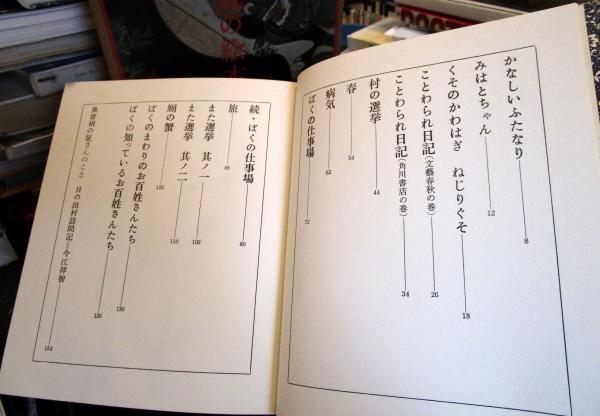 かなしいふたなり 8
みはとちゃん 12
くそのかわはぎ ねじりぐそ 18
ことわられ日記(文藝春秋の巻) 26
ことわられ日記(角川書店の巻) 34
村の選挙 44
春 54
病気 63
ぼくの仕事場 72
続・ぼくの仕事場 80
旅 88
また選挙 其ノ一 102
また選挙 其ノ二 110
鵙の蟹 122
ぼくのまわりのお百姓さんたち 130
ぼくの知っているお百姓さんたち 136
異骨相の征さんのこと 日の出村訪問記―今江祥智 154
の絵本